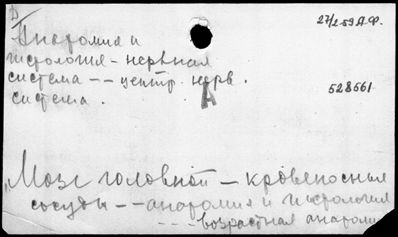 Анатомия и
гистология - нервная
система -- центр. нерв.
система.
27/2 59 А.Ф.
528561
А
"Мозг головной - кровеносные
сосуды -- анатомия и гистология
--- возрастная анатомия